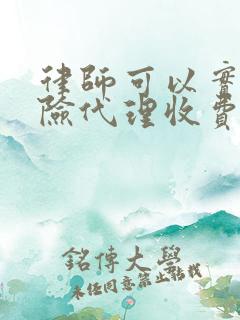 律師可以實
險代理收費
銘傳大學
未任同意禁止轉載